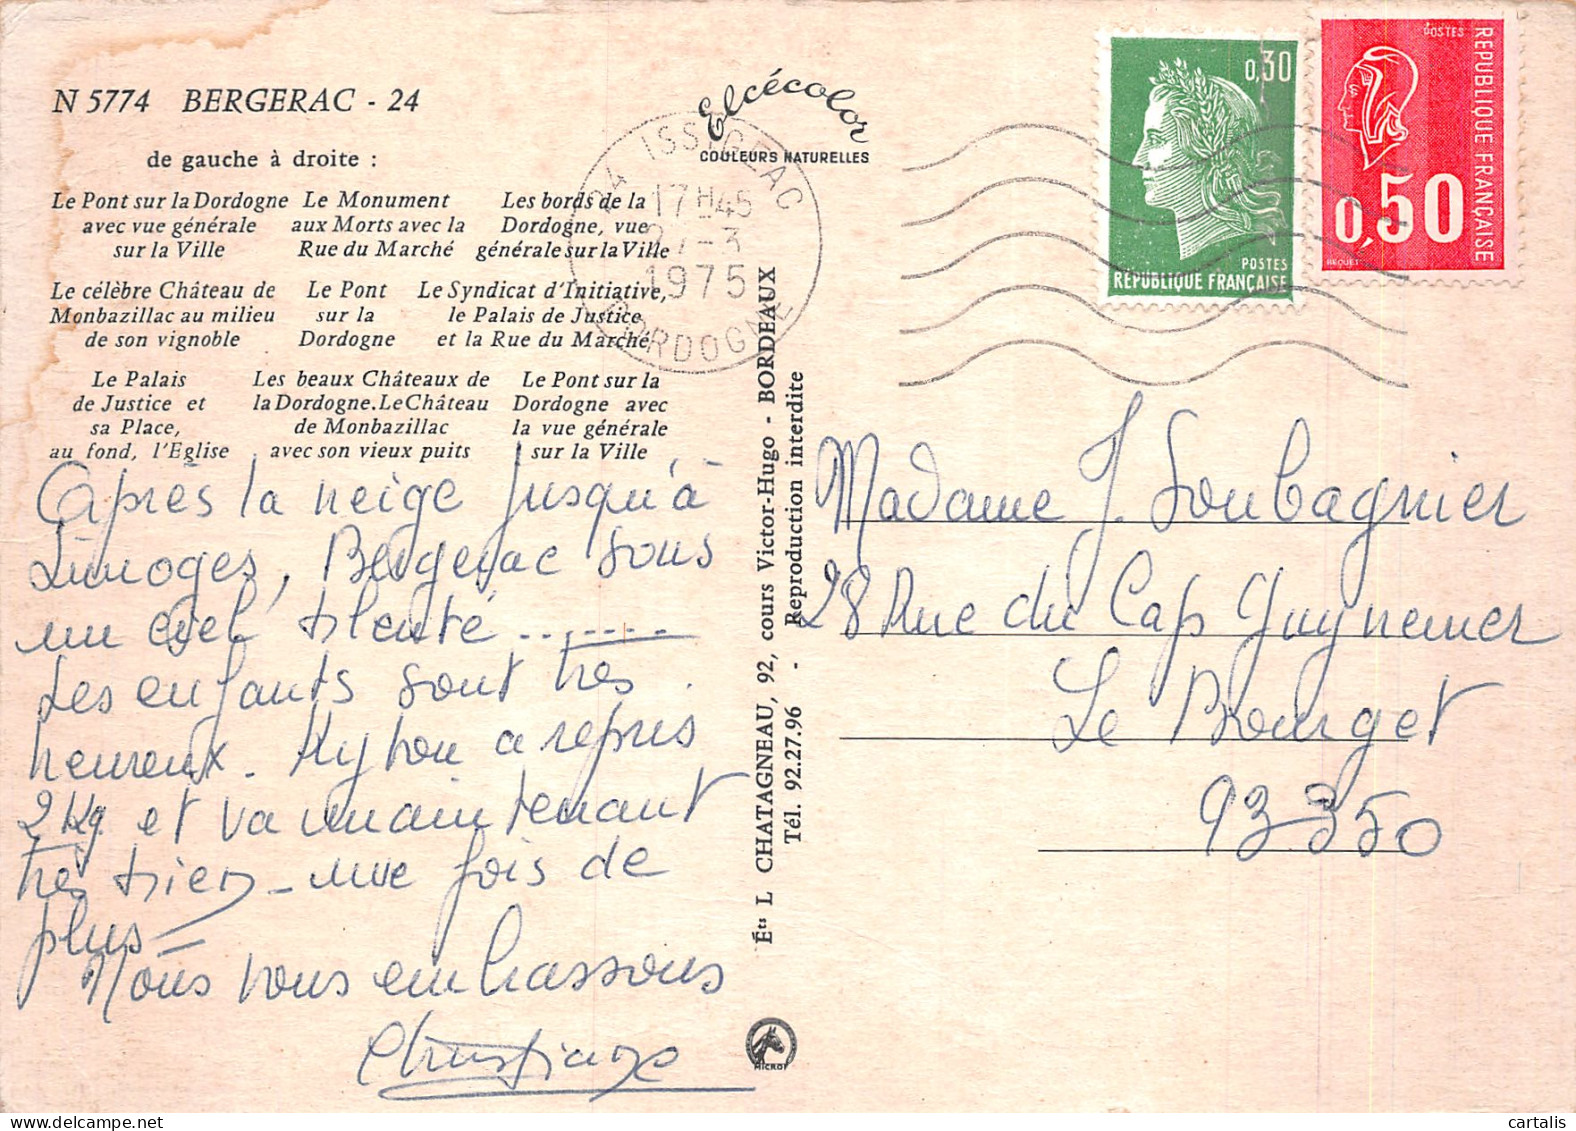 N 5774 BERGERAC - 24
de gauche à droite :
Le Pont sur la Dordogne
avec vue générale
sur la Ville
Le Monument
aux Morts avec la
Rue du Marché
Les bords de la
Dordogne, vue
générale sur la Ville
Le célèbre Château de
Monbazillac au milieu
de son vignoble
Le Pont
sur la
Dordogne
Le Syndicat d'Initiative,
le Palais de Justice
et la Rue du Marché
Le Palais
de Justice et
sa Place,
au fond, l'Eglise
Les beaux Châteaux de
la Dordogne. Le Château
de Monbazillac
avec son vieux puits
Le Pont sur la
Dordogne avec
la vue générale
sur la Ville
Elcécolor
COULEURS NATURELLES
24 ISSIGEAC
17H45
-3
1975
DORDOGNE
0,30
POSTES
REPUBLIQUE FRANÇAISE
POSTES
REPUBLIQUE FRANÇAISE
0,50
BEQUET
Après la neige jusqu'à
Limoges, Bergerac sous
un ciel
Les enfants sont très
heureux. a repris
2 Kg. et va maintenant
très bien - une fois de
plus -
Nous vous embrassons
Christiane
Éts L CHATAGNEAU, 92, cours Victor-Hugo - BORDEAUX
Tél. 92.27.96 - Reproduction interdite
MICRO
Madame J. Soubagnier
28 Rue du Cap Guynemer
Le Bourget
93350
cartalis
www.delcampe.net